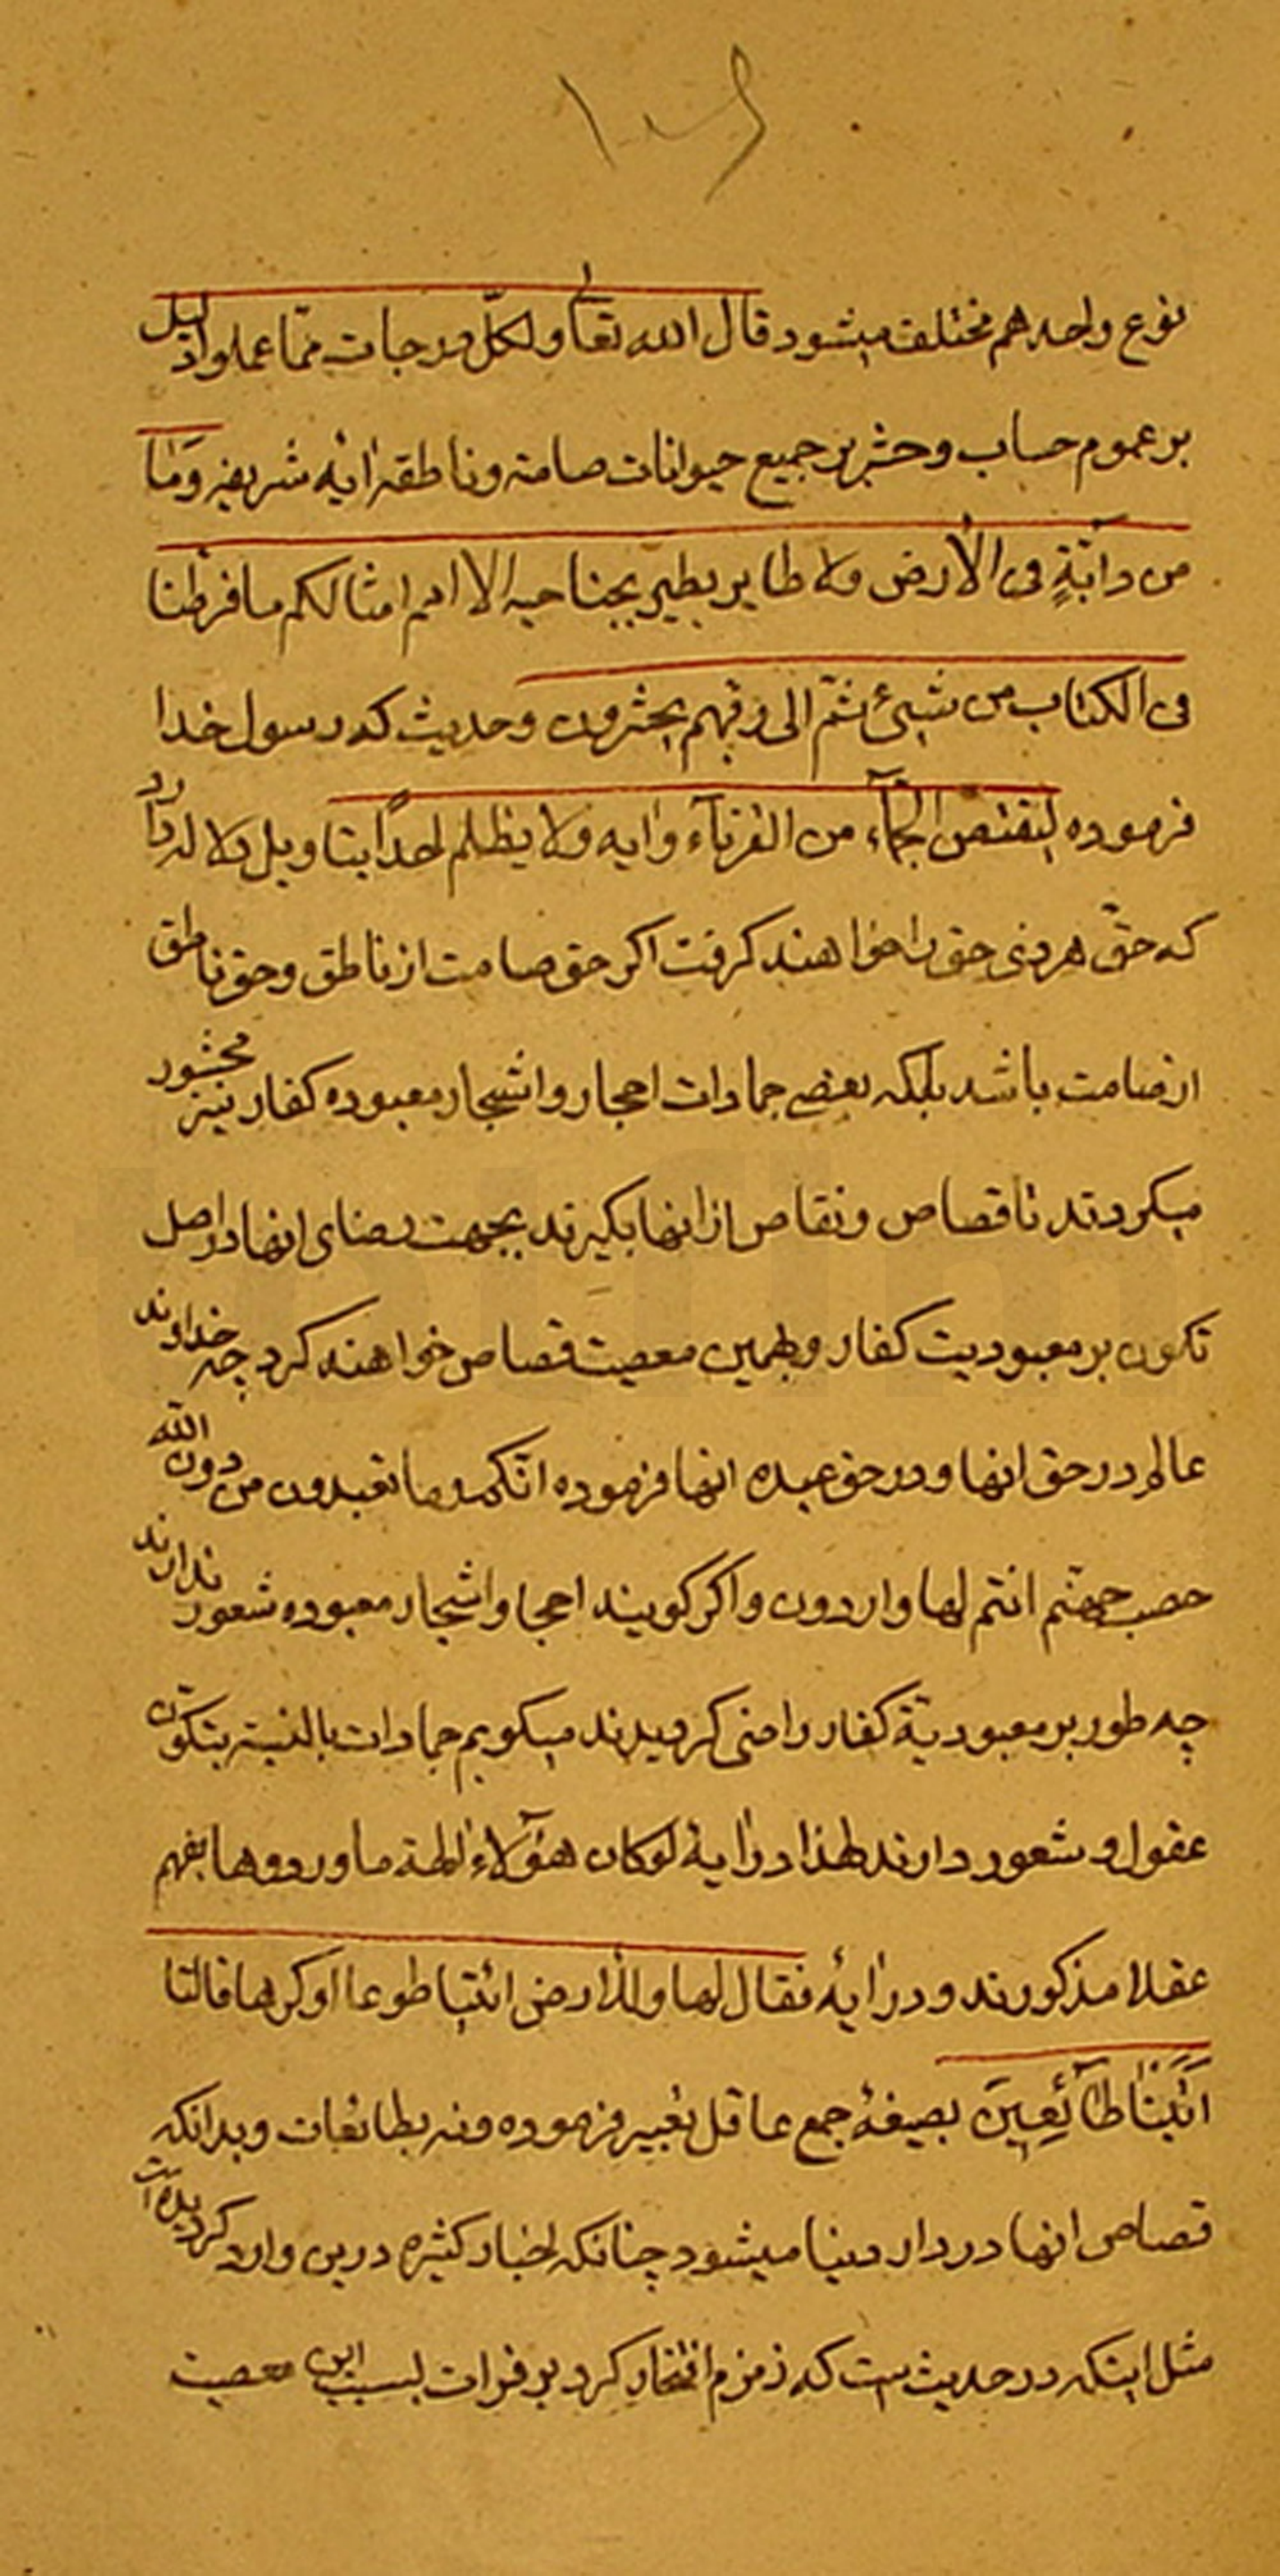 ۱۰۶
نوع واحد هم مختلف میشود قال الله تعالی ولکلّ درجات ممّا عملوا دلیل
بر عموم حساب و حشر بر جمیع حیوانات صامته و ناطقه آیهٔ شریفه وَمٰا
من دآبّةٍ فی الأرض ولا طایر یطیر بجناحیه الا امم امثالکم ما فرطنا
فی الکتاب من شیئ ثمّ الی ربّهم یحشرون و حدیث که رسول خدا
فرموده لیقتص الجمّآء من القرنآء و آیه ولا یظلم احداً بتاویل دلاله دارد
که حقّ هر ذی حق را خواهند کرفت اکر حق صامت از ناطق و حق ناطق
از صامت باشد بلکه بعضی جمادات احجار و اشجار معبوده کفار نیز محشور
میکردند تا قصاص و نقاص از انها بکیرند بجهت رضای انها در اصل
تکون بر معبودیت کفار و بهمین معصیت قصاص خواهند کرد چه خداوند
عالم در حق انها و در حق عبده انها فرموده انّکم وما تعبدون من دون الله
حصب جهنّم انتم لها واردون و اکر کویند احجا و اشجار معبوده شعور ندارند
چه طور بر معبودیّة کفار راضی کردیدند میکویم جمادات بالنسبته بتکوّن
عقول و شعور دارند لهذا در آیة لوکان هؤلاء الهة ما وردوها بفهم
عقلا مذکورند و در آیهٔ فقال لها وللأرض ائتیا طوعا او کرها قالتا
اَتَیْنٰا طٰآئِعِینَ بصیغهٔ جمع عاقل تعبیر فرموده و نه بطائعات و بدانکه
قصاص انها در دار دنیا میشود چنانکه اخبار کثیره درین وارد کردیده است
مثل اینکه در حدیث ست که زمزم افتخار کرد بر فرات بسبب این معصیت